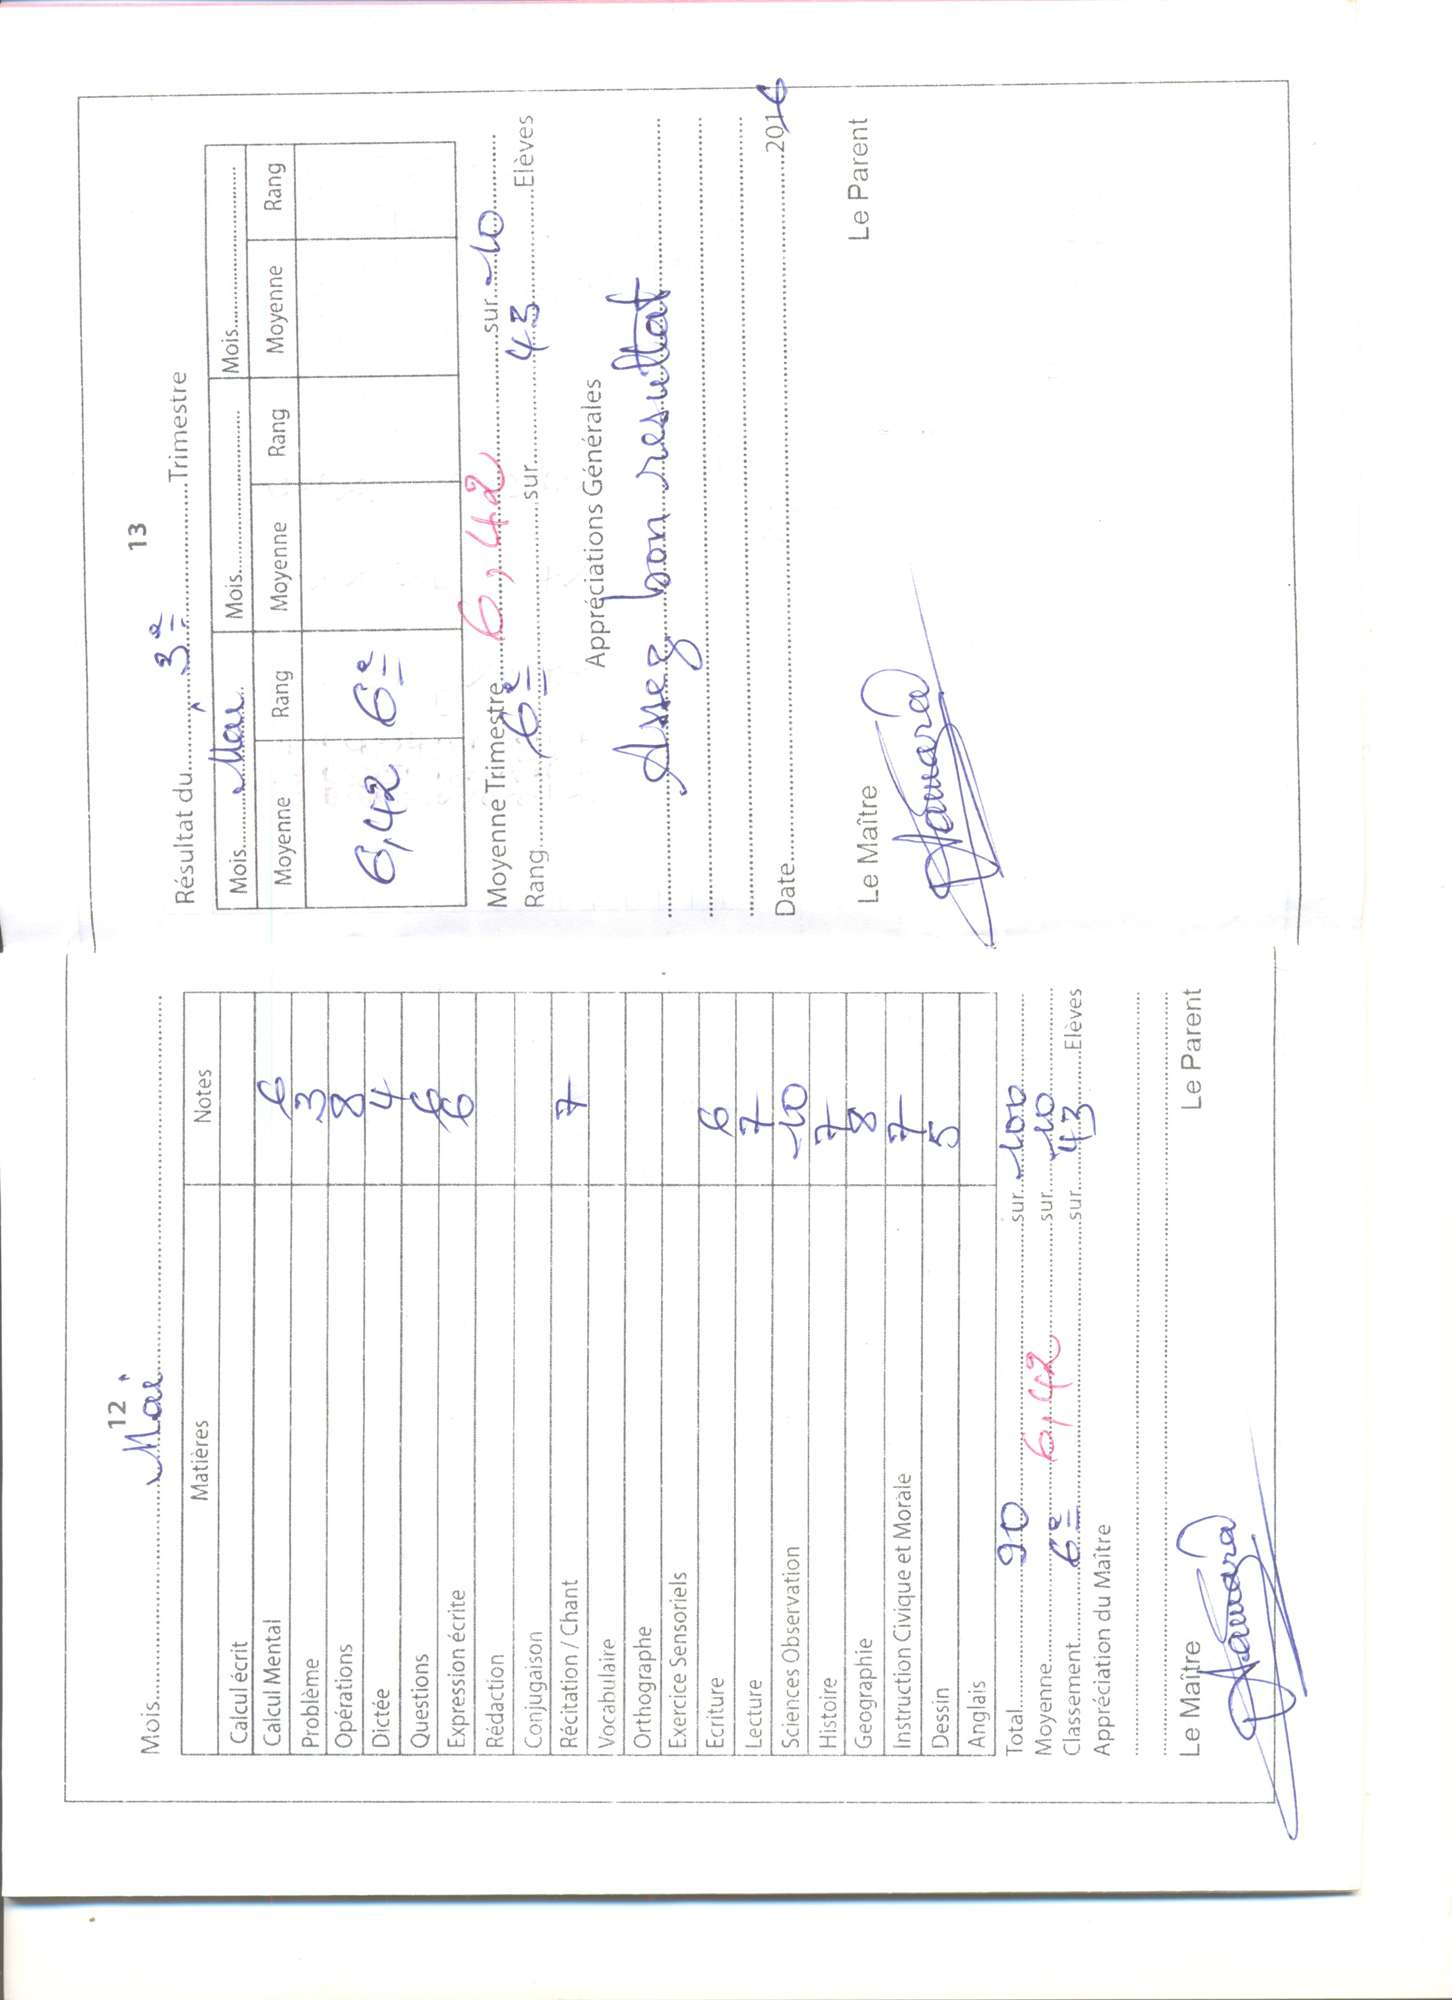 12
Mois Mai
Matières Notes
Calcul écrit
Calcul Mental 6
Problème 3
Opérations 8
Dictée 4
Questions 6
Expression écrite 6
Rédaction
Conjugaison
Récitation / Chant 7
Vocabulaire
Orthographe
Exercice Sensoriels
Ecriture 6
Lecture 7
Sciences Observation 10
Histoire 7
Geographie 8
Instruction Civique et Morale 7
Dessin 5
Anglais
Total 90 sur 100
Moyenne 6,42 sur 10
Classement 6e sur 43 Elèves
Appréciation du Maître
Le Maître Le Parent
Camara
13
Résultat du 3e Trimestre
Mois Mai Mois Mois
Moyenne Rang Moyenne Rang Moyenne Rang
6,42 6e
Moyenne Trimestre 6,42 sur 10
Rang 6e sur 43 Elèves
Appréciations Générales
Assez bon resultat
Date 2016
Le Maître Le Parent
Camara